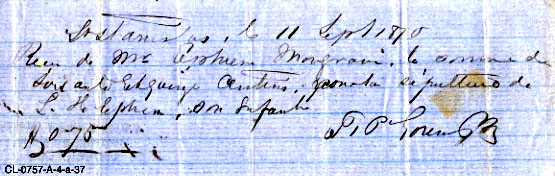 St Stanislas, le 11 Sept 1870
Recu de Mr Ephrem Mongrain, la somme de
Soixante Et quinze Centins, pour la sépulture de
L. H. Ephrem, son Enfant
$0-75
CL-0757-A-4-a-37